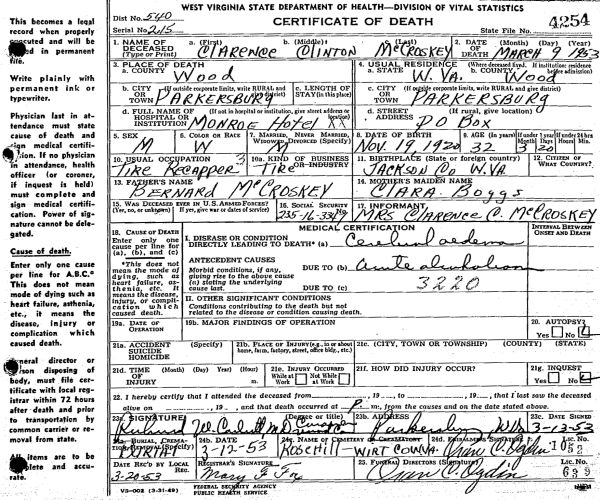 WEST VIRGINIA STATE DEPARTMENT OF HEALTH—DIVISION OF VITAL STATISTICS
Dist No. 540
CERTIFICATE OF DEATH
4254
Serial No. 215
State File No.
This becomes a legal
record when properly
executed and will be
in permanent
file.
Write plainly with
permanent ink or
typewriter.
Physician last in at-
tendance must state
cause of death and
sign medical certifi-
If no physician
in attendance, health
officer (or coroner,
if inquest is held)
must complete and
sign medical certifi-
cation. Power of sig-
nature cannot be dele-
gated.
Cause of death.
Enter only one cause
per line for A.B.C.*
This does not mean
mode of dying such as
heart failure, asthenia,
etc., it means the
disease, injury or
complication which
caused death.
director or
disposing of
body, must file cer-
tificate with local reg-
istrar within 72 hours
after death and prior
to transportation by
common carrier or re-
moval from state.
All items are to be
and accu-
rate.
1. NAME OF DECEASED (Type or Print) a. (First) CLARENCE b. (Middle) CLINTON c. (Last) McCROSKEY
2. DATE OF DEATH (Month) (Day) (Year) MARCH 9 1953
3. PLACE OF DEATH a. COUNTY WOOD
4. USUAL RESIDENCE (Where deceased lived. If institution: residence before admission) a. STATE W. VA. b. COUNTY WOOD
b. CITY OR TOWN (If outside corporate limits, write RURAL and give district) PARKERSBURG c. LENGTH OF STAY (in this place)
c. CITY OR TOWN (If outside corporate limits, write RURAL and give district) PARKERSBURG
d. FULL NAME OF HOSPITAL OR INSTITUTION (If not in hospital or institution, give street address or location) MONROE HOTEL
d. STREET ADDRESS (If rural, give location) PO BOX
5. SEX M
6. COLOR OR RACE W
7. MARRIED, NEVER MARRIED, WIDOWED, DIVORCED (Specify)
8. DATE OF BIRTH NOV. 19, 1920
9. AGE (In years) 32 If under 1 year Months 3 Days 20 If under 24 Hrs. Hours Min.
10. USUAL OCCUPATION TIRE RECAPPER 3
10a. KIND OF BUSINESS OR INDUSTRY TIRE
11. BIRTHPLACE (State or foreign country) JACKSON CO W.VA
12. CITIZEN OF WHAT COUNTRY?
13. FATHER'S NAME BERNARD McCROSKEY
14. MOTHER'S MAIDEN NAME CLARA BOGGS
15. WAS DECEASED EVER IN U.S. ARMED FORCES? (Yes, no, or unknown) (If yes, give war or dates of service)
16. SOCIAL SECURITY 235-16-33
17. INFORMANT MRS CLARENCE C. McCROSKEY
18. CAUSE OF DEATH
Enter only one cause per line for (a), (b), and (c)
*This does not mean the mode of dying, such as heart failure, asthenia, etc. It means the disease, injury, or complication which caused death.
MEDICAL CERTIFICATION
INTERVAL BETWEEN ONSET AND DEATH
I. DISEASE OR CONDITION DIRECTLY LEADING TO DEATH* (a) Cerebral oedema
ANTECEDENT CAUSES
Morbid conditions, if any, giving rise to the above cause (a) stating the underlying cause last.
DUE TO (b) acute alcoholism
DUE TO (c) 3220
II. OTHER SIGNIFICANT CONDITIONS
Conditions contributing to the death but not related to the disease or condition causing death.
19a. DATE OF OPERATION
19b. MAJOR FINDINGS OF OPERATION
20. AUTOPSY? Yes No
21a. ACCIDENT SUICIDE HOMICIDE (Specify)
21b. PLACE OF INJURY (e.g., in or about home, farm, factory, street, office bldg., etc.)
21c. (CITY, TOWN OR TOWNSHIP) (COUNTY) (STATE)
21d. TIME OF INJURY (Month) (Day) (Year) (Hour) m.
21e. INJURY OCCURRED While at Work Not While at Work
21f. HOW DID INJURY OCCUR?
21g. INQUEST Yes No
22. I hereby certify that I attended the deceased from , 19 , to , 19 , that I last saw the deceased
alive on , 19 , and that death occurred at P. m., from the causes and on the date stated above.
23a. SIGNATURE (Degree or title) M.D. Coroner
23b. ADDRESS Parkersburg W.Va
23c. DATE SIGNED 3-12-53
24a. BURIAL, CREMATION, REMOVAL (Specify) BURIAL
24b. DATE 3-12-53
24c. NAME OF CEMETERY OR CREMATORY ROSEHILL-WIRT CO WVA
24d. EMBALMER'S SIGNATURE Oran C. Ogdin Lic. No. 1052
DATE REC'D BY LOCAL REG. 3-20-53
REGISTRAR'S SIGNATURE Mary F. Fox
25. FUNERAL DIRECTOR'S SIGNATURE Oran C. Ogdin Lic. No. 639
VS-002 (3-31-49)
FEDERAL SECURITY AGENCY
PUBLIC HEALTH SERVICE